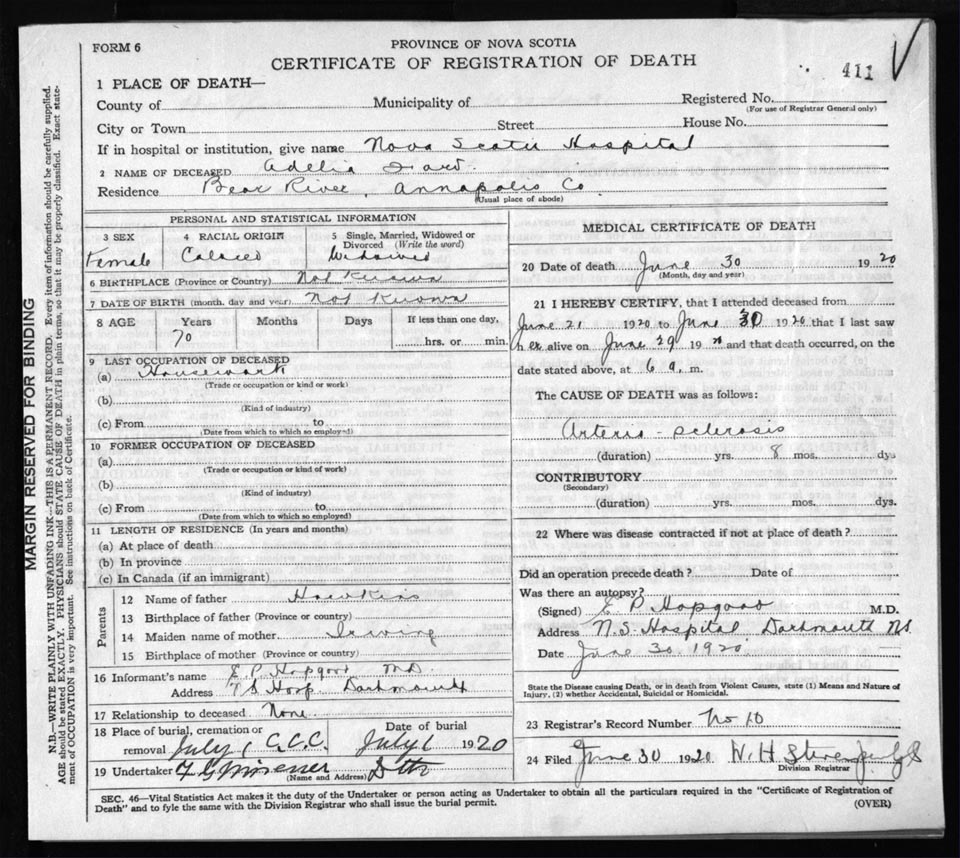 FORM 6
PROVINCE OF NOVA SCOTIA
CERTIFICATE OF REGISTRATION OF DEATH
411
1 PLACE OF DEATH—
County of Municipality of Registered No.
(For use of Registrar General only)
City or Town Street House No.
If in hospital or institution, give name Nova Scotia Hospital
2 NAME OF DECEASED Adelia
Residence Bear River, Annapolis Co
(Usual place of abode)
MARGIN RESERVED FOR BINDING
N.B.—WRITE PLAINLY WITH UNFADING INK—THIS IS A PERMANENT RECORD. Every item of information should be carefully supplied.
AGE should be stated EXACTLY. PHYSICIANS should STATE CAUSE OF DEATH in plain terms, so that it may be properly classified. Exact state-
ment of OCCUPATION is very important. See instructions on back of Certificate.
PERSONAL AND STATISTICAL INFORMATION
3 SEX 4 RACIAL ORIGIN 5 Single, Married, Widowed or
Divorced (Write the word)
Female Colored Widowed
6 BIRTHPLACE (Province or Country) Not Known
7 DATE OF BIRTH (month, day and year) Not Known
8 AGE Years Months Days If less than one day,
70 hrs. or min.
9 LAST OCCUPATION OF DECEASED
(a) Housework
(Trade or occupation or kind or work)
(b)
(Kind of industry)
(c) From to
(Date from which to which so employed)
10 FORMER OCCUPATION OF DECEASED
(a)
(Trade or occupation or kind of work)
(b)
(Kind of industry)
(c) From to
(Date from which so employed)
11 LENGTH OF RESIDENCE (In years and months)
(a) At place of death
(b) In province
(c) In Canada (if an immigrant)
Parents
12 Name of father Hawkins
13 Birthplace of father (Province or country)
14 Maiden name of mother Irving
15 Birthplace of mother (Province or country)
16 Informant's name E. P. Hopgood M.D.
Address Hosp Dartmouth
17 Relationship to deceased None
18 Place of burial, cremation or Date of burial
removal July 1 C.C.C. July 1 1920
19 Undertaker
(Name and Address)
MEDICAL CERTIFICATE OF DEATH
20 Date of death June 30 1920
(Month, day and year)
21 I HEREBY CERTIFY, that I attended deceased from
June 21 1920 to June 30 1920 that I last saw
h er alive on June 29 19 and that death occurred, on the
date stated above, at 6 a. m.
The CAUSE OF DEATH was as follows:
Arterio-sclerosis
(duration) yrs. 8 mos. dys
CONTRIBUTORY
(Secondary)
(duration) yrs. mos. dys.
22 Where was disease contracted if not at place of death?
Did an operation precede death? Date of
Was there an autopsy?
(Signed) E P Hopgood M.D.
Address N.S. Hospital Dartmouth NS
Date June 30 1920
State the Disease causing Death, or in death from Violent Causes, state (1) Means and Nature of
Injury, (2) whether Accidental, Suicidal or Homicidal.
23 Registrar's Record Number No 10
24 Filed June 30 1920 W. H.
Division Registrar
SEC. 46—Vital Statistics Act makes it the duty of the Undertaker or person acting as Undertaker to obtain all the particulars required in the "Certificate of Registration of
Death" and to fyle the same with the Division Registrar who shall issue the burial permit. (OVER)